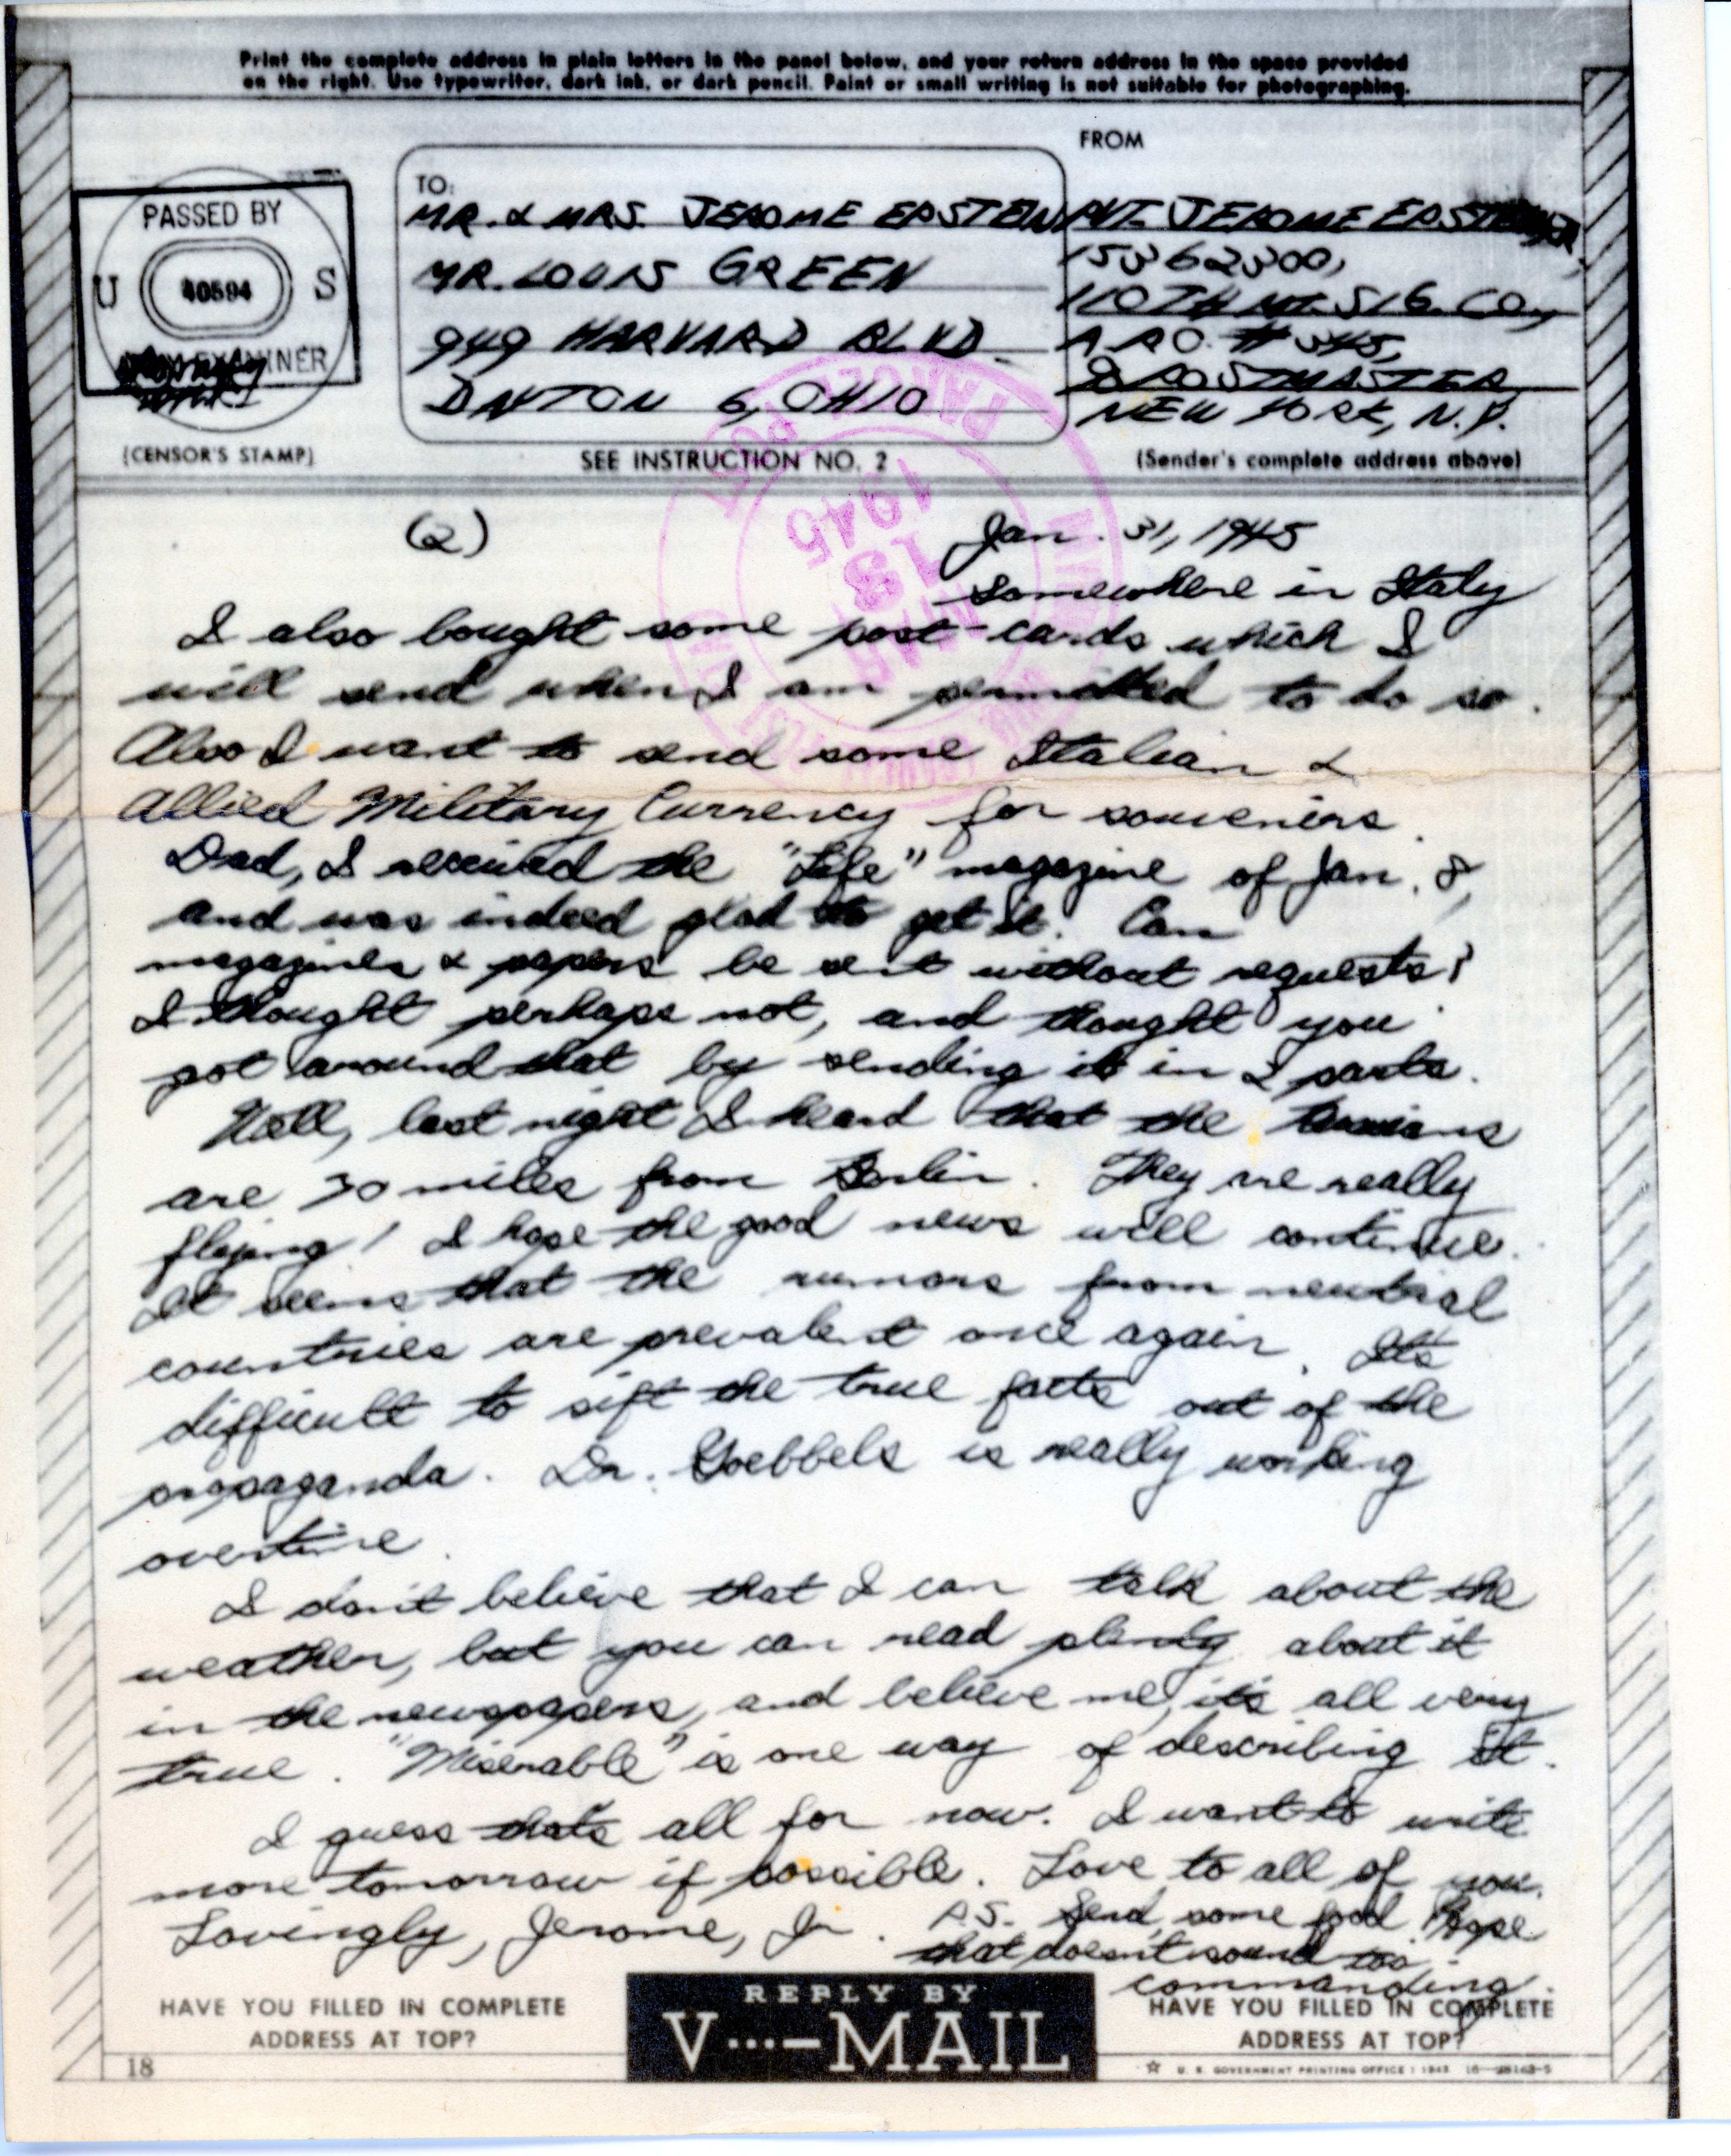 Print the complete address in plain letters in the panel below, and your return address in the space provided
on the right. Use typewriter, dark ink, or dark pencil. Faint or small writing is not suitable for photographing.
FROM
PASSED BY
U 40594 S
EXAMINER
(CENSOR'S STAMP)
TO:
MR. & MRS. JEROME EASTEIN
MR. LOUIS GREEN
949 HARVARD BLVD.
DAYTON 6, OHIO
SEE INSTRUCTION NO. 2
PVT. JEROME
15362300,
110TH MT. SIG. CO,
A.P.O. #345,
POSTMASTER
NEW YORK, N.Y.
(Sender's complete address above)
PARCEL POST
MAR
13
1945
(2)
Jan. 31, 1945
Somewhere in Italy
I also bought some post-cards which I
will send when I am permitted to do so.
Also I want to send some Italian &
Allied Military Currency for souveniers.
Dad, I received the "Life" magazine of Jan. 8,
and was indeed glad to get it. Can
magazines & papers be sent without requests?
I thought perhaps not, and thought you
got around that by sending it in 2 parts.
Well, last night I heard that the Russians
are 30 miles from Berlin. They're really
flying! I hope the good news will continue.
It seems that the rumors from neutral
countries are prevalent once again. It's
difficult to sift the true facts out of the
propaganda. Dr. Goebbels is really working
overtime.
I don't believe that I can talk about the
weather, but you can read plenty about it
in the newspapers, and believe me, it's all very
true. "Miserable" is one way of describing it.
I guess that's all for now. I want to write
more tomorrow if possible. Love to all of you.
Lovingly, Jerome, Jr.
P.S. Send some food. Hope
that doesn't sound too
commanding.
HAVE YOU FILLED IN COMPLETE
ADDRESS AT TOP?
REPLY BY
V···—MAIL
HAVE YOU FILLED IN COMPLETE
ADDRESS AT TOP?
18
☆ U. S. GOVERNMENT PRINTING OFFICE : 1943 16—28143-5